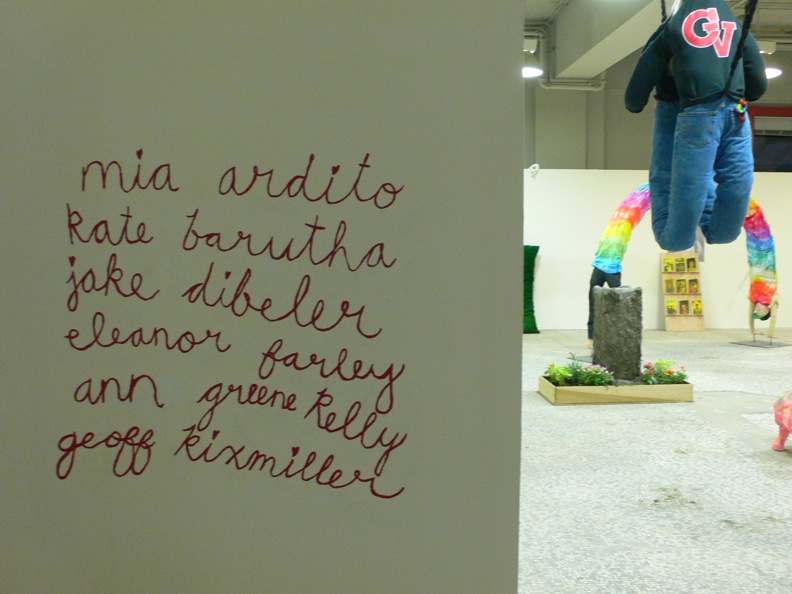 mia ardito
kate barutha
jake dibeler
eleanor farley
ann greene kelly
geoff kixmiller
GV